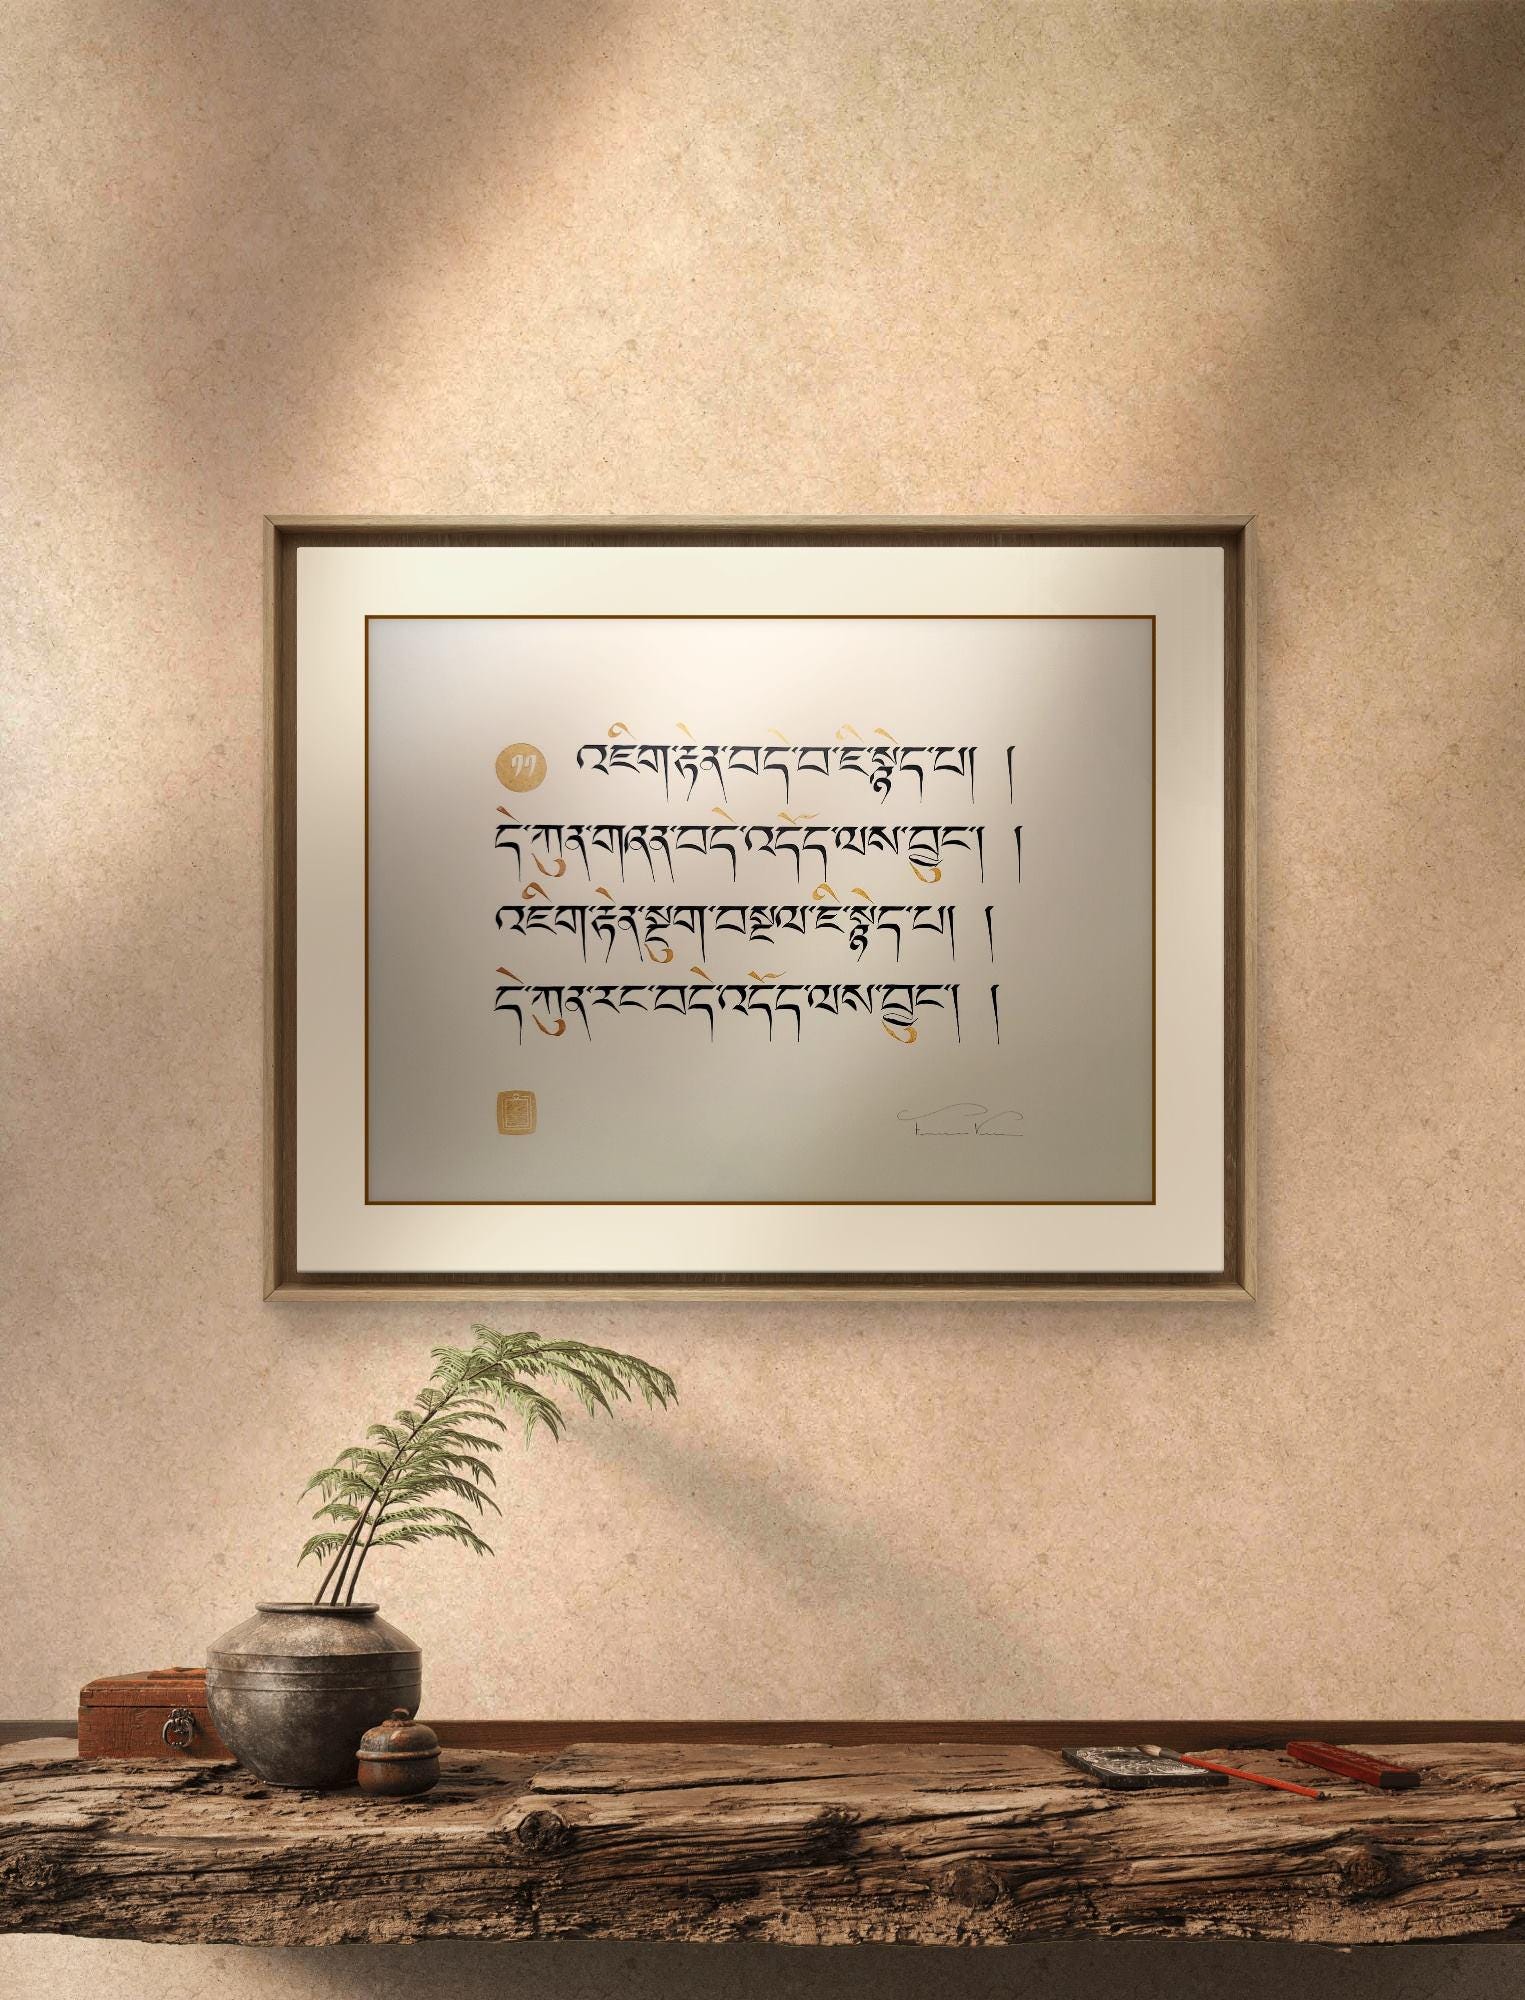 འཇིག་རྟེན་བདེ་བ་ཇི་སྙེད་པ། །
དེ་ཀུན་གཞན་བདེ་འདོད་ལས་བྱུང་། །
འཇིག་རྟེན་སྡུག་བསྔལ་ཇི་སྙེད་པ། །
དེ་ཀུན་རང་བདེ་འདོད་ལས་བྱུང་། །